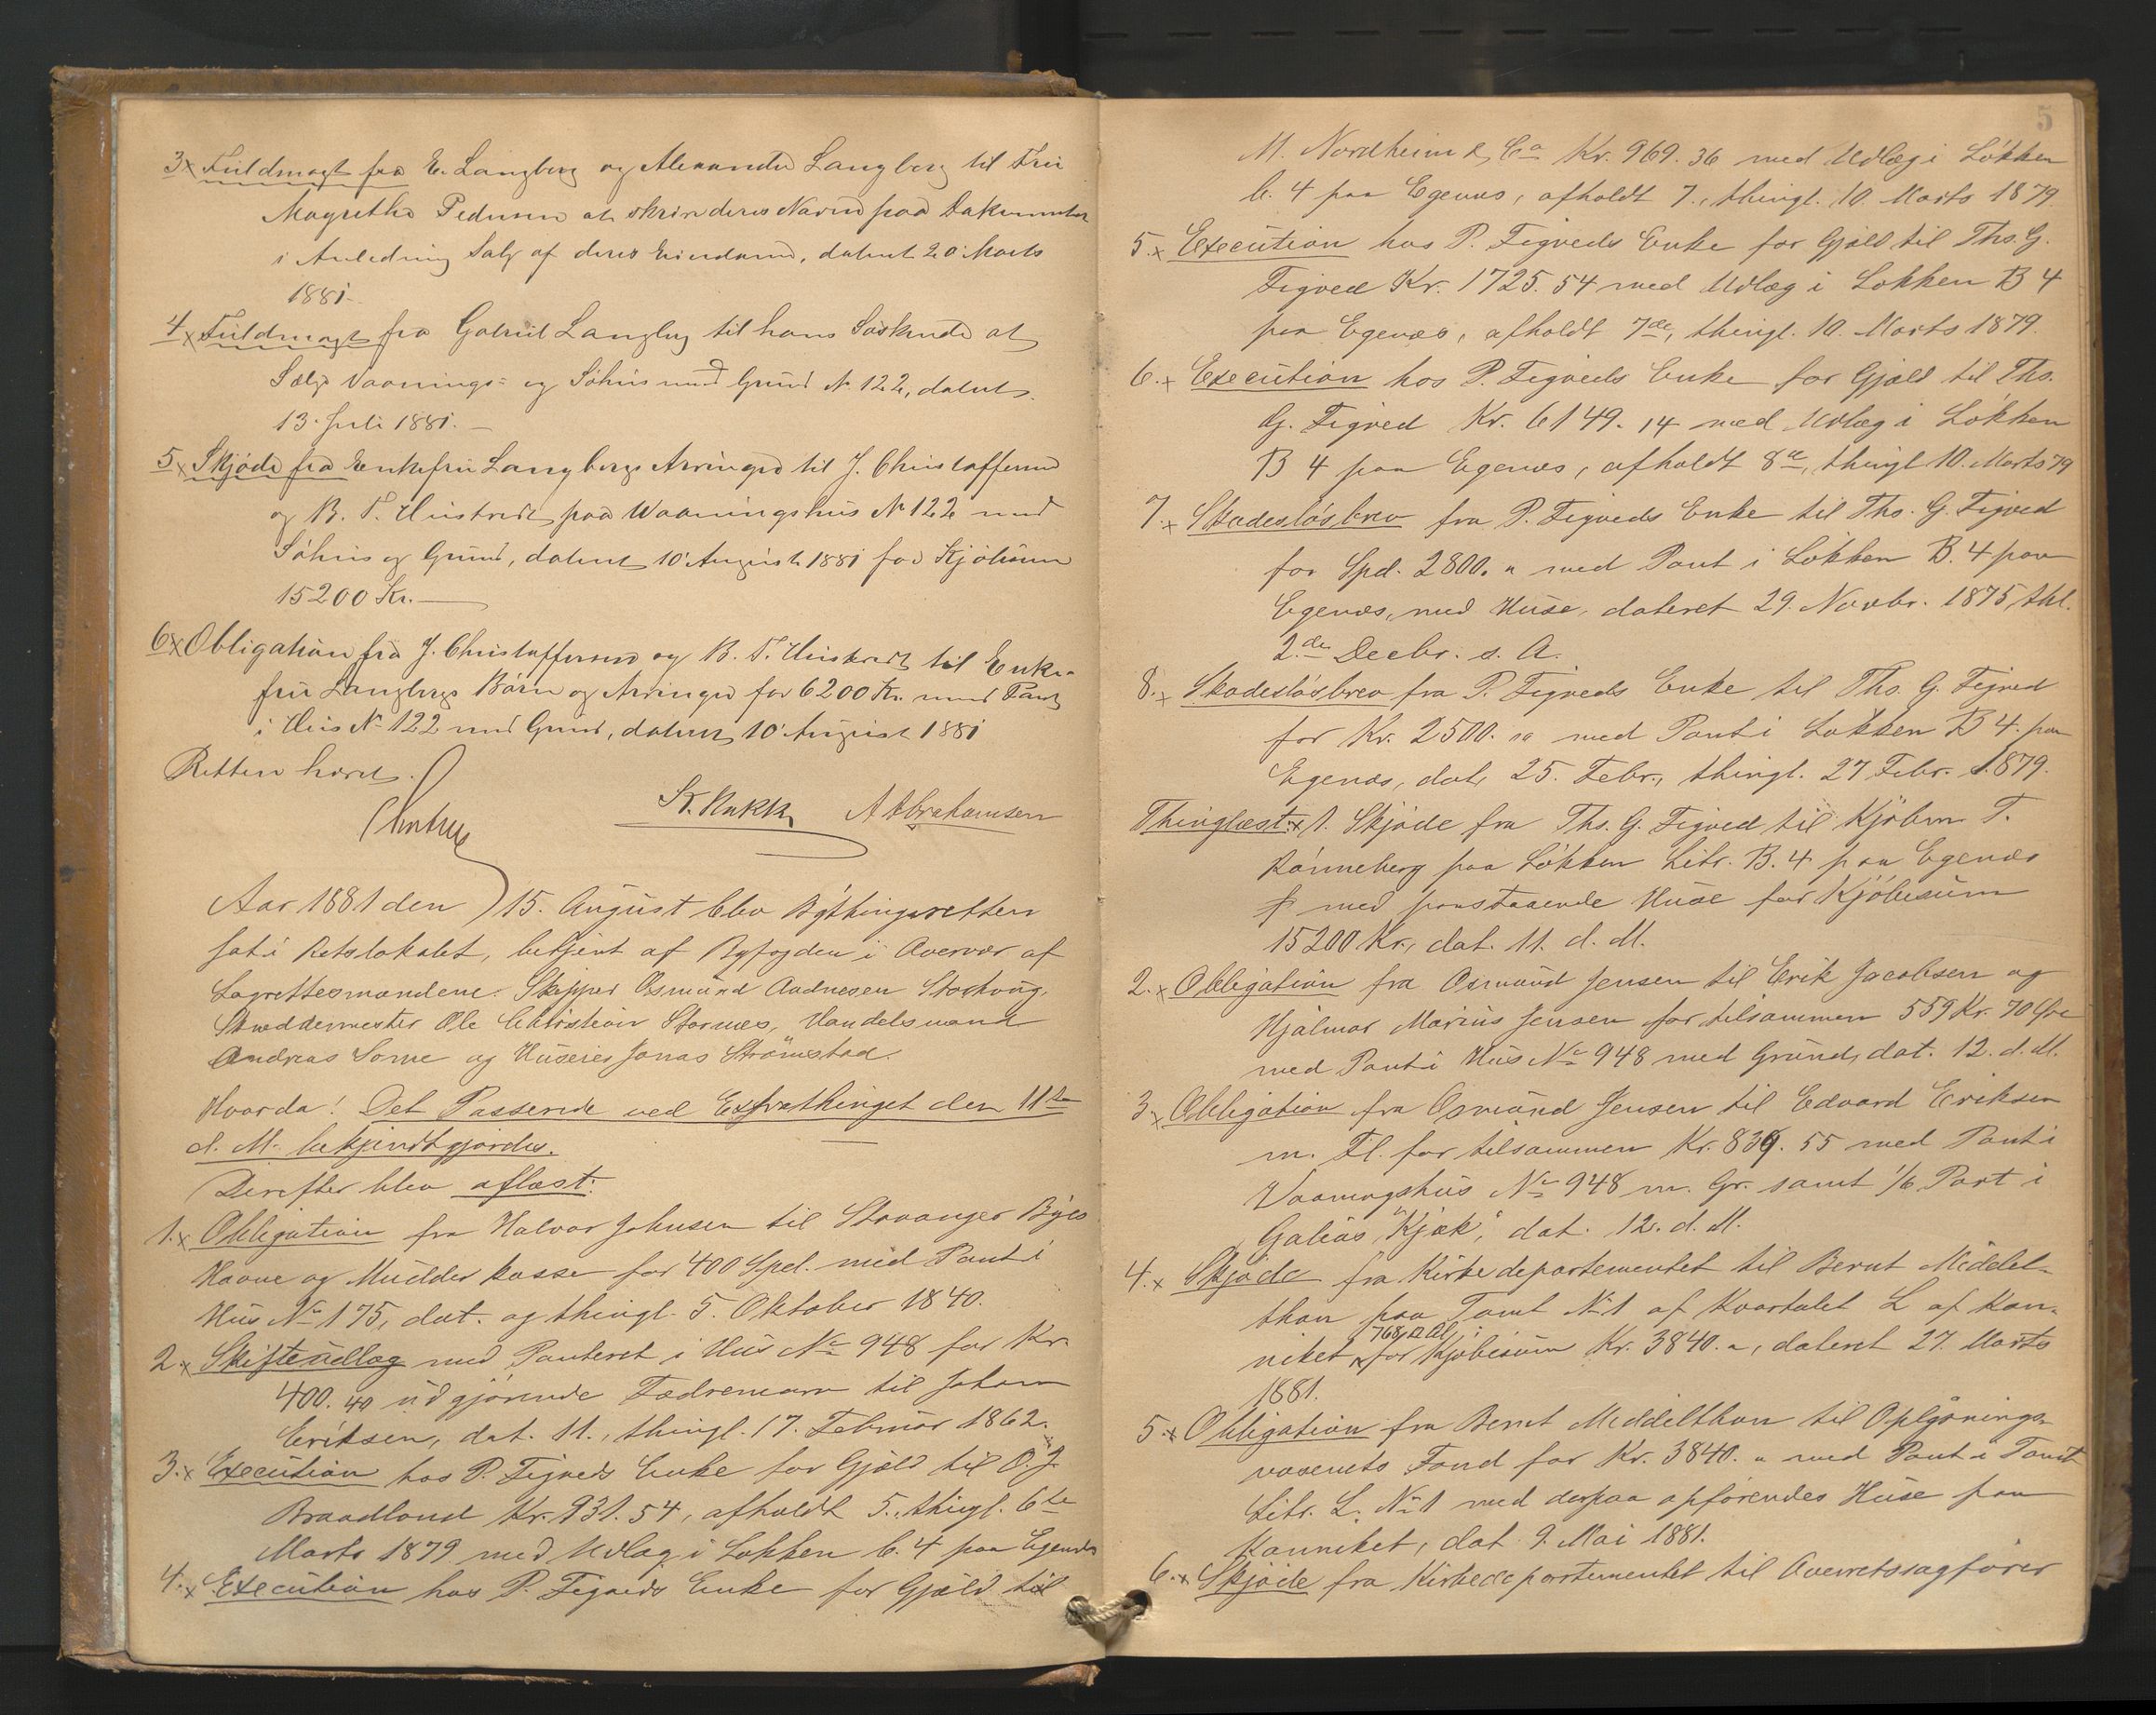 3x Fuldmagt fra E. Langberg og Alexander Langberg til Fru
Magrethe Pedersen at skrive deres Navne paa Dokumenter
i Anledning Salg af deres Eiendomme, dateret 20 Marts
1881.
4x Fuldmagt fra Gabriel Langberg til hans Søskende at
Sælge Vaanings= og Søhus med Grund No 122, dateret
13 Juli 1881. —
5x Skjøde fra Enkefru Langbergs Arvinger til J. Christoffersen
og B. T. paa Waaningshus No 122 med
Søhus og Grund, dateret 10 August 1881 for Kjøbesum
15200 Kr. —
6x Obligation fra J. Christoffersen og B. T. til Enke-
fru Langbergs Børn og Arvinger for 6200 Kr. med Pant
i Hus No 122 med Grund, dateret 10 August 1881
Retten hævet.
A Abrahamsen
Aar 1881 den 15. August blev Bythingsretten
sat i Retslokalet, betjent af Byfogden i Overvær af
Lagrettesmændene: Skipper Osmund Andresen
Skræddermester Ole Christian Stornæs, Handelsmand
Andreas Somme og Huseier Jonas Strømstad.
Hvorda! Det Passerede ved Extrathinget den 11te
d. M. bekjendtgjordes. —
Derefter blev aflæst:
1.x Obligation fra Halvor Johnsen til Stavanger Byes
Havne og Mudder kasse for 400 Spd. med Pant i
Hus No 175, dat. og thingl. 5. Oktober 1840.
2.x Skifteudlæg med Panteret i Hus No 948 for Kr.
400.40 udgjørende Fædrenearv til Johan
Eriksen, dat. 11., thingl. 17. Februar 1862.
3.x Execution hos P. Figveds Enke for Gjæld til O. J.
Braadland Kr. 931.54, afholdt 5., thingl. 6te
Marts 1879 med Udlæg i Løkken b. 4 paa Egenæs
4.x Execution hos P. Figveds Enke for Gjæld til
5
M. Nordheim & Co Kr. 969.36 med Udlæg i Løkken
b. 4 paa Egenæs, afholdt 7., thingl. 10. Marts 1879
5.x Execution hos P. Figveds Enke for Gjæld til Ths. G.
Figved Kr. 1725.54 med Udlæg i Løkken B 4
paa Egenæs, afholdt 7de, thingl. 10. Marts 1879.
6.x Execution hos P. Figveds Enke for Gjæld til Ths.
G. Figved Kr. 6149.14 med Udlæg i Løkken
B 4 paa Egenæs, afholdt 8de, thingl 10. Marts 79
7.x Skadesløsbrev fra P. Figveds Enke til Ths. G. Figved
for Spd. 2800. " med Pant i Løkken B. 4 paa
Egenæs, med Huse, dateret 29. Novbr. 1875, thl.
2.den Decbr. s. A.
8.x Skadesløsbrev fra P. Figveds Enke til Ths. G. Figved
for Kr. 2500. " med Pant i Løkken B 4. paa
Egenæs, dat. 25. Febr., thingl. 27 Febr. 1879.
Thinglæst: x 1. Skjøde fra Ths. G. Figved til Kjøbm. T.
Rønneberg paa Løkken Litr. B. 4 paa Egenæs
med paastaaende Huse for Kjøbesum
15200 Kr., dat. 11. d. M.
2.x Obligation fra Osmund Jensen til Erik Jacobsen og
Hjalmar Marius Jensen for tilsammen 559 Kr. 70 Øre
med Pant i Hus No 948 med Grund, dat. 12. d. M.
3.x Obligation fra Osmund Jensen til Edvard Eriksen
m. Fl. for tilsammen Kr. 839.55 med Pant i
Vaaningshus No 948 m. Gr. samt 1/6 Part i
Galeas "Kjæk", dat. 12. d. M.
4.x Skjøde fra Kirkedepartementet til Bernt Middel-
thon paa Tomt No 1 af Kvartalet L af Kan-
niket 768 □ Al. for Kjøbesum Kr. 3840. ", dateret 27. Marts
1881.
5.x Obligation fra Bernt Middelthon til Oplysnings-
væsenets Fond for Kr. 3840. " med Pant i Tomt
Litr. L. No 1 med derpaa opførendes Huse paa
Kanniket, dat. 9. Mai 1881.
6.x Skjøde fra Kirkedepartementet til Overretssagfører